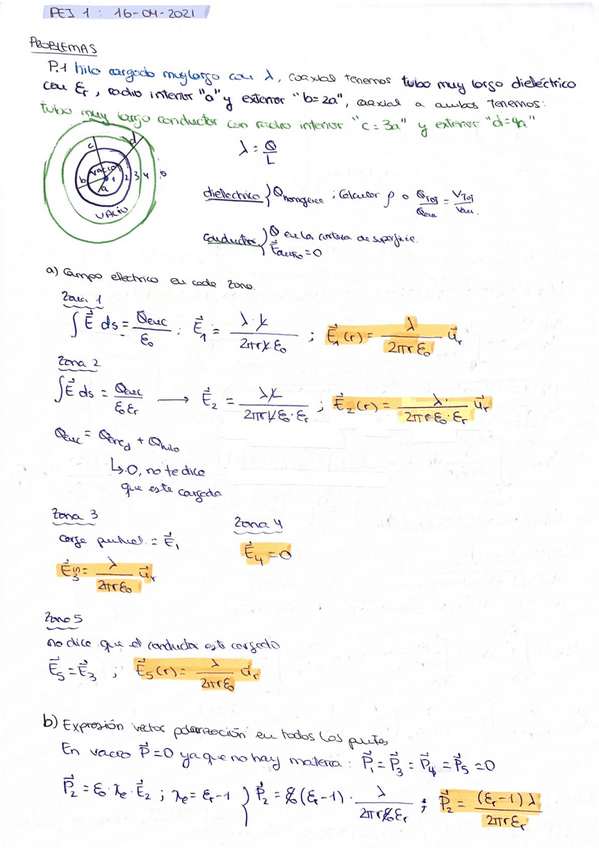 PEI 1 : 16-04-2021
PROBLEMAS
P.1 hilo cargado muy largo con λ, coaxial tenemos tubo muy largo dieléctrico
con εr, radio interior "a" y exterior "b=2a", coaxial a ambos tenemos:
tubo muy largo conductor con radio interior "c=3a" y exterior "d=4a"
c d
b VACIO 1 2 3 4 5
a
VACIO
λ = Q/L
dielectrico } Q homogénea ; Calcular ρ o QTot/Qenc = VTot/Venc.
conductor } Q en la corteza de superficie.
E dentro = 0
a) Campo electrico en cada zona.
Zona 1
∫E⃗ ds = Qenc/ε0 ; E⃗1 = λ·L/2πrLε0 ; E⃗1(r) = λ/2πrε0 u⃗r
Zona 2
∫E⃗ ds = Qenc/ε0εr → E⃗2 = λL/2πrLε0·εr ; E⃗2(r) = λ/2πrε0·εr u⃗r
Qenc = Qencd + Qhilo
↳0, no te dice
que este cargado
Zona 3
carga puntual = E⃗1
E⃗3(r) = λ/2πrε0 u⃗r
Zona 4
E⃗4 = 0
Zona 5
no dice que el conductor esté cargado
E⃗5 = E⃗3 ; E⃗5(r) = λ/2πrε0 u⃗r
b) Expresión vector polarización en todos los puntos
En vacío P⃗=0 ya que no hay materia : P⃗1 = P⃗3 = P⃗4 = P⃗5 = 0
P⃗2 = ε0·χe·E⃗2 ; χe = εr-1 } P⃗2 = ε0(εr-1)· λ/2πrε0εr ; P⃗2 = (εr-1)λ/2πrεr